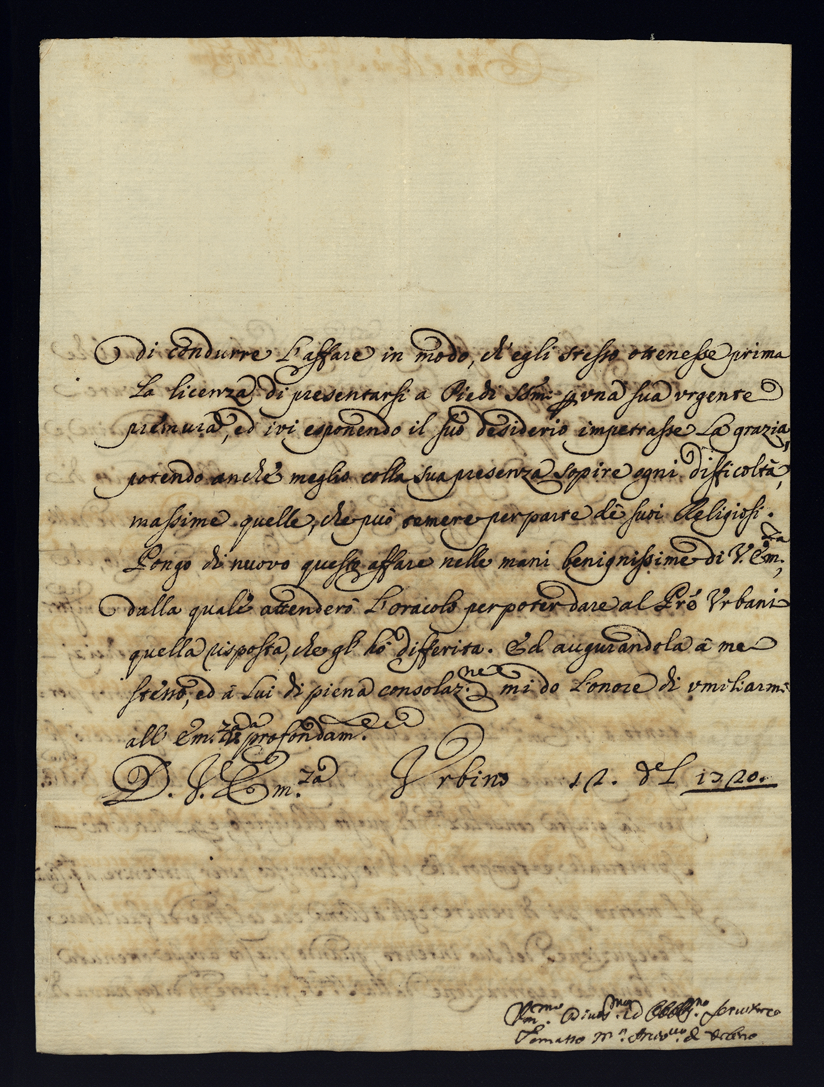 di condurre l'affare in modo, ch'egli stesso ottenesse prima
la licenza di presentarsi a Piedi SSmi p una sua urgente
premura, ed ivi esponendo il suo desiderio impetrasse la grazia,
potendo anche meglio colla sua presenza sopire ogni difficoltà,
massime quelle, che può temere per parte de suoi Religiosi.
Pongo di nuovo questo affare nelle mani benignissime di V. Em.za,
dalla quale attenderò l'oracolo per poter dare al Pre Urbani
quella risposta, che gl'hò differita. Ed augurandola à me
stesso, ed à lui di piena consolaz.ne mi do l'onore di umiliarmi
all' Em.za profondam.e
D. V. Em.za Urbino 12. del 1720.
Um.mo Divot.mo ed Obblig.mo Servitore
Tomaso M.a Arciv.vo di Urbino